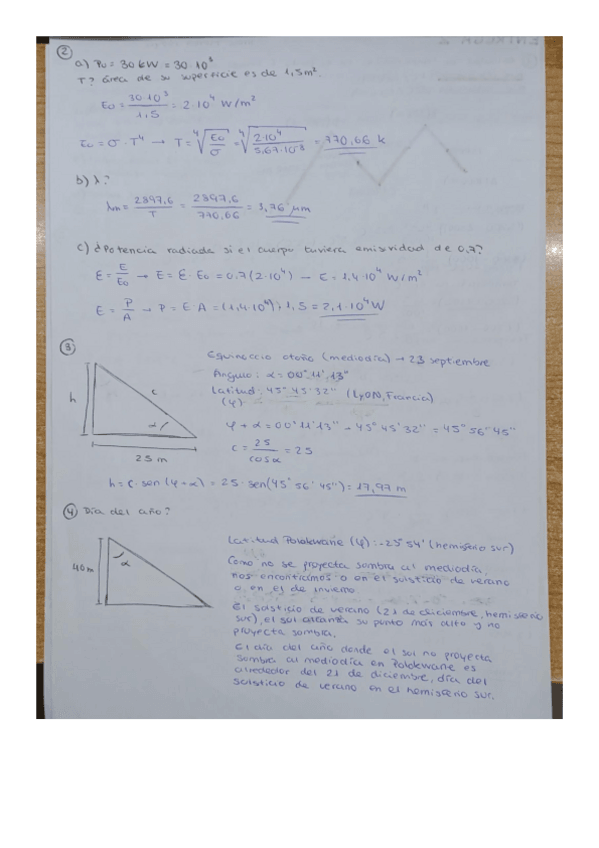 2
a) P₀ = 30 kW = 30·10³
T? Área de su superficie es de 1,5 m².
E₀ = 30·10³ / 1,5 = 2·10⁴ W/m²
E₀ = σ · T⁴ → T = ⁴√(E₀/σ) = ⁴√(2·10⁴ / 5,67·10⁻⁸) = 770,66 k
b) λ?
λm = 2897,6 / T = 2897,6 / 770,66 = 3,76 µm
c) ¿Potencia radiada si el cuerpo tuviera emisividad de 0,7?
E = E/E₀ → E = E · E₀ = 0.7 (2·10⁴) → E = 1,4·10⁴ W/m²
E = P/A → P = E·A = (1,4·10⁴)·1,5 = 2,1·10⁴ W
3
Equinoccio otoño (mediodía) → 23 septiembre
Ángulo: α = 00° 11' 13"
Latitud: 45° 45' 32" (LyON, Francia)
(φ)
h
c
α
25 m
φ + α = 00° 11' 13" + 45° 45' 32" = 45° 56' 45"
c = 25 / cosα = 25
h = c · sen(φ+α) = 25 · sen(45° 56' 45") = 17,97 m
4 Día del año?
40m
α
Latitud Polokwane (φ): -23° 54' (hemisferio sur)
Como no se proyecta sombra al mediodía,
nos encontramos o en el solsticio de verano
o en el de invierno.
El solsticio de verano (21 de diciembre, hemisferio
sur), el sol alcanza su punto más alto y no
proyecta sombra.
El día del año donde el sol no proyecta
sombra al mediodía en Polokwane es
alrededor del 21 de diciembre, día del
solsticio de verano en el hemisferio sur.